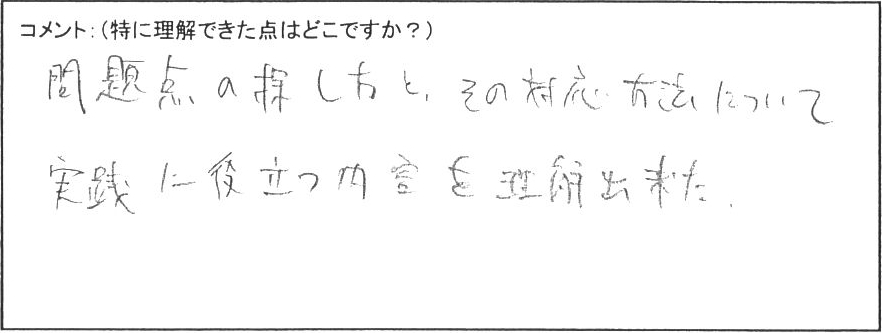 コメント：（特に理解できた点はどこですか？）
問題点の探し方と、その対応方法について
実践に役立つ内容を理解出来た。